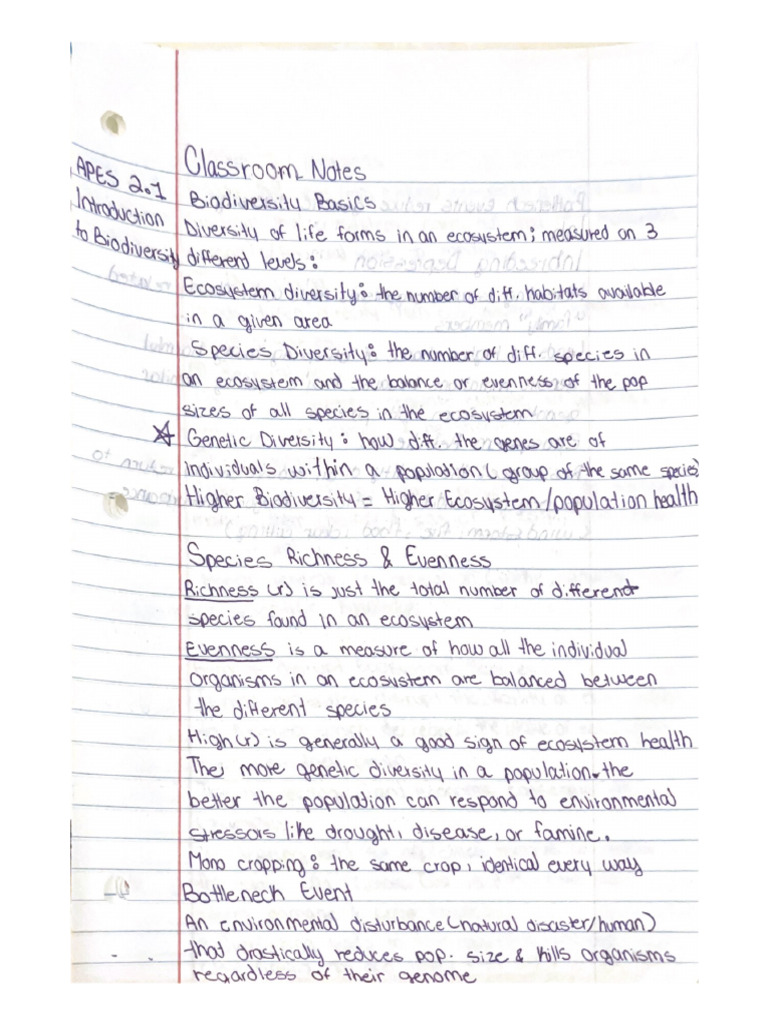 Classroom Notes
APES 2.1
Introduction
to Biodiversity
Biodiversity Basics
Diversity of life forms in an ecosystem; measured on 3
different levels:
Ecosystem diversity: the number of diff. habitats available
in a given area
Species Diversity: the number of diff. species in
an ecosystem and the balance or evenness of the pop
sizes of all species in the ecosystem
Genetic Diversity: how diff. the genes are of
individuals within a population (group of the same species)
Higher Biodiversity = Higher Ecosystem/population health
Species Richness & Evenness
Richness (r) is just the total number of different
species found in an ecosystem
Evenness is a measure of how all the individual
organisms in an ecosystem are balanced between
the different species
High (r) is generally a good sign of ecosystem health
The more genetic diversity in a population. the
better the population can respond to environmental
stressors like drought, disease, or famine.
Mono cropping: the same crop, identical every way
Bottleneck Event
An environmental disturbance (natural disaster/human)
that drastically reduces pop. size & kills organisms
regardless of their genome